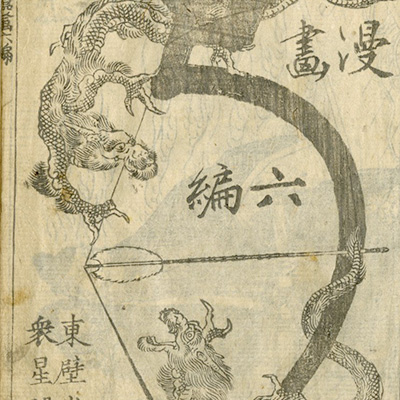 漫畫
六編
東壁
衆星